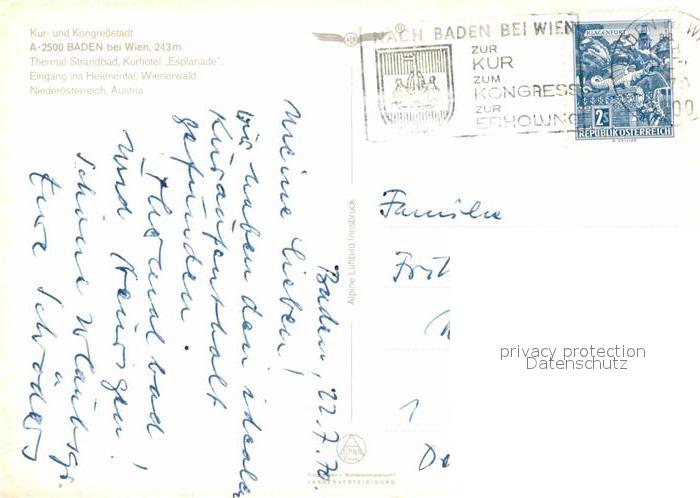 Kur- und Kongreßstadt
A-2500 BADEN bei Wien, 243 m
Thermal-Strandbad, Kurhotel „Esplanade",
Eingang ins Helenental, Wienerwald.
Niederösterreich, Austria
NACH BADEN BEI WIEN
ZUR
KUR
ZUM
KONGRESS
ZUR
ERHOLUNG
KLAGENFURT
2S
REPUBLIK ÖSTERREICH
Baden, 22.7.70.
Meine Lieben!
Wir haben den idealen
Kuraufenthalt
gefunden.
Thermalbad
und Heurigen!
Schöne Urlaubsgr.
Eure
Alpine Luftbild Innsbruck
LANDESVERTEIDIGUNG
Familie
privacy protection
Datenschutz